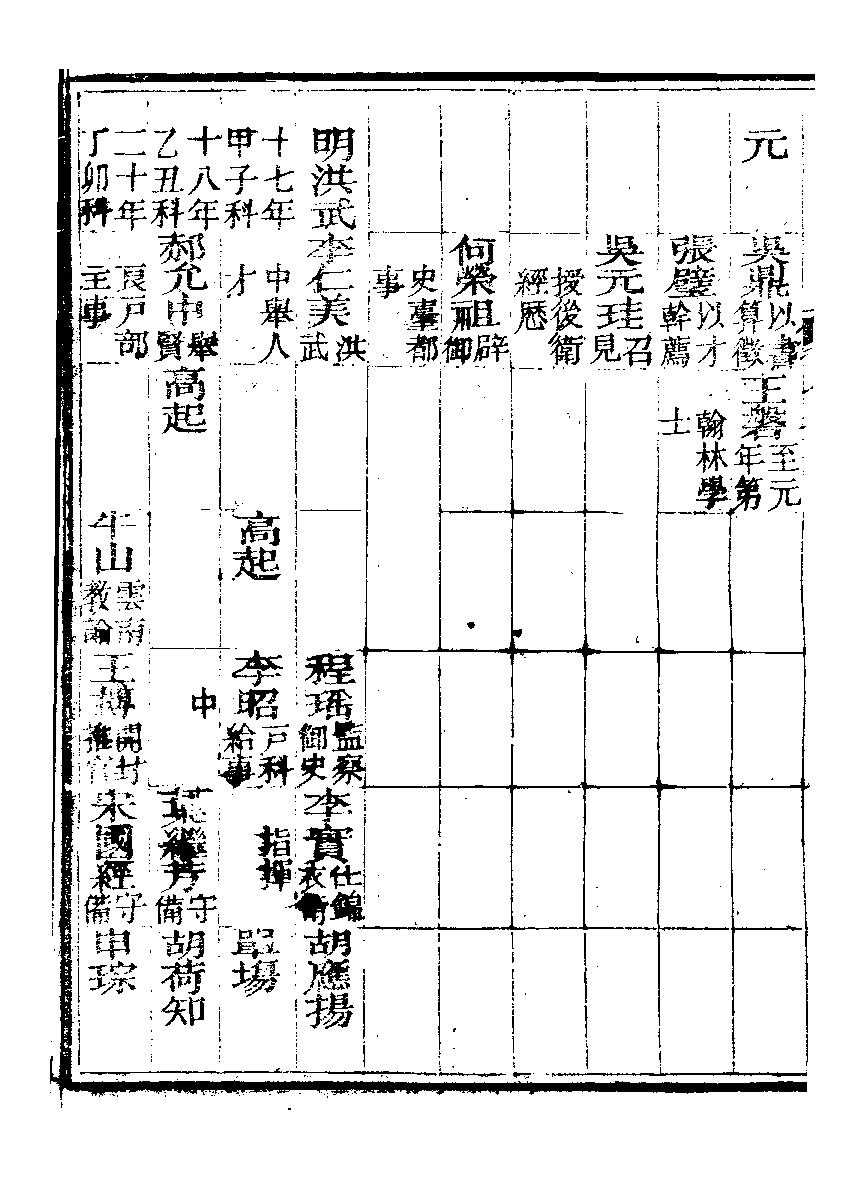 元
吳鼎以書算徵
王磐至元年第
張璧以才幹薦
翰林學士
吳元珪召見
授後衛經歷
何榮祖辟御
史臺都事
明洪武
李仁美洪武
程瑤監察御史
李實仕錦衣衛
胡應揚
十七年甲子科
中舉人才
高起
李昭戸科給事
指揮
場
十八年乙丑科
郝允中舉賢
高起
中
葉繼芳守備
胡荷知
二十年丁卯科
良戸部主事
牛山雲南教諭
王 開封推官
宋國經守備
申琮